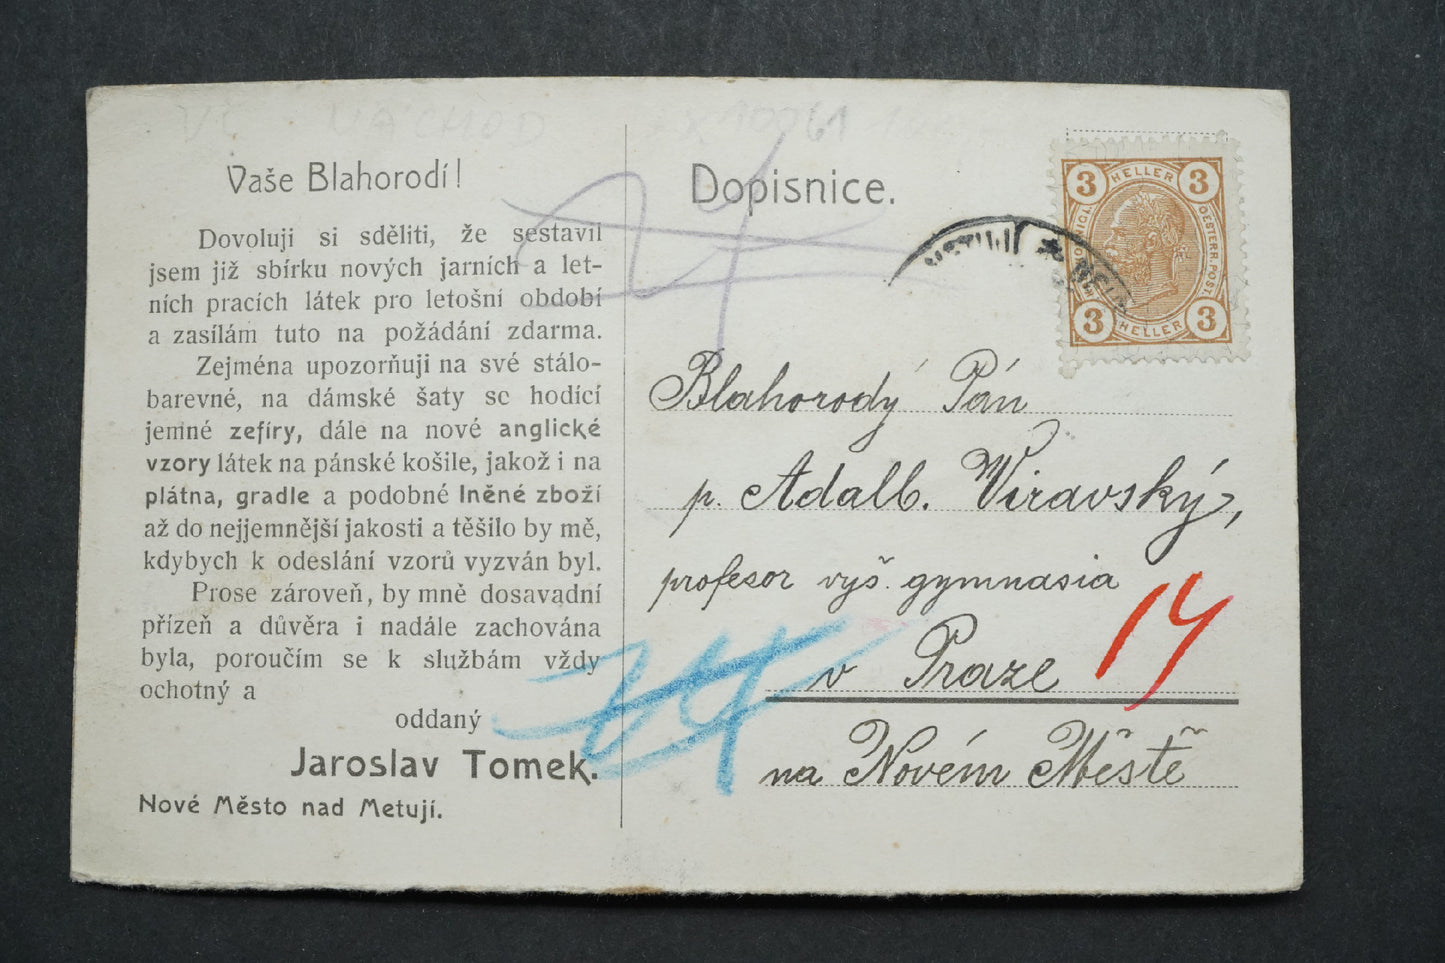 Vaše Blahorodí!
Dovoluji si sděliti, že sestavil
jsem již sbírku nových jarních a let-
ních pracích látek pro letošní období
a zasílám tuto na požádání zdarma.
Zejména upozorňuji na své stálo-
barevné, na dámské šaty se hodící
jemné zefíry, dále na nové anglické
vzory látek na pánské košile, jakož i na
plátna, gradle a podobné lněné zboží
až do nejjemnější jakosti a těšilo by mě,
kdybych k odeslání vzorů vyzván byl.
Prose zároveň, by mně dosavadní
přízeň a důvěra i nadále zachována
byla, poroučím se k službám vždy
ochotný a
oddaný
Jaroslav Tomek.
Nové Město nad Metují.
VČ NÁCHOD
Dopisnice.
3 HELLER 3
OESTERR. POST.
3 HELLER 3
Blahorodý Pán
p. Adalb. Wiravský,
profesor vyš. gymnasia
v Praze
14
na Novém Městě